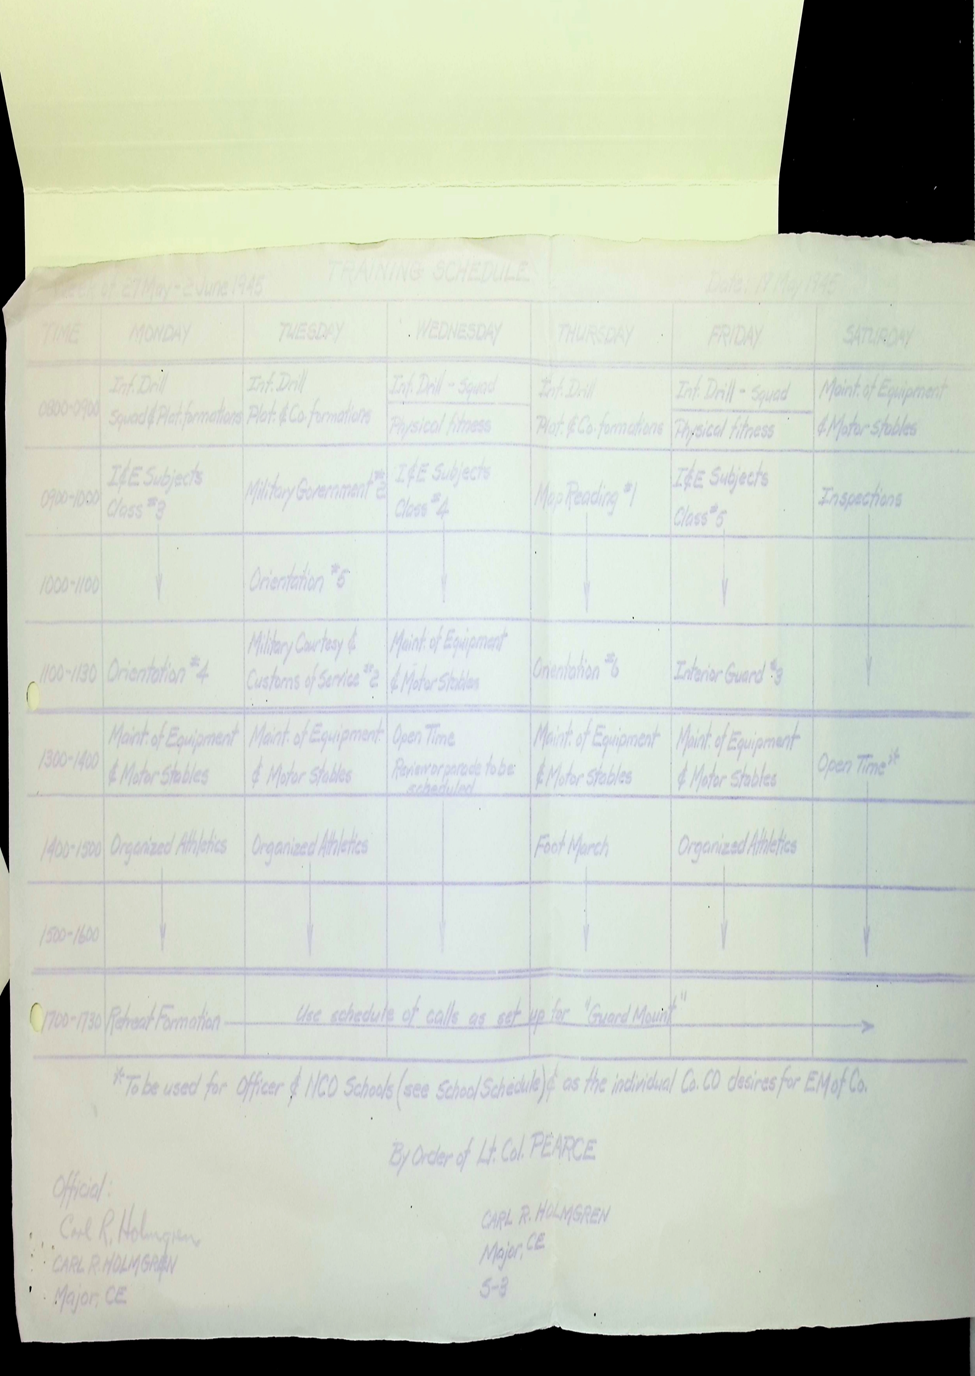 TRAINING SCHEDULE
Week of 27 May - 2 June 1945 Date: 19 May 1945
TIME MONDAY TUESDAY WEDNESDAY THURSDAY FRIDAY SATURDAY
0800-0900
Inf. Drill
Squad & Plat. formations
Inf. Drill
Plat. & Co. formations
Inf. Drill - Squad
Physical fitness
Inf. Drill
Plat. & Co. formations
Inf. Drill - Squad
Physical fitness
Maint. of Equipment
& Motor Stables
0900-1000
I&E Subjects
Class #3
Military Government #2
I&E Subjects
Class #4
Map Reading #1
I&E Subjects
Class #5
Inspections
1000-1100
Orientation #5
1100-1130
Orientation #4
Military Courtesy &
Customs of Service #2
Maint. of Equipment
& Motor Stables
Orientation #6
Interior Guard #3
1300-1400
Maint. of Equipment
& Motor Stables
Maint. of Equipment
& Motor Stables
Open Time
Review or parade to be
scheduled
Maint. of Equipment
& Motor Stables
Maint. of Equipment
& Motor Stables
Open Time*
1400-1500
Organized Athletics
Organized Athletics
Foot March
Organized Athletics
1500-1600
1700-1730
Retreat Formation
Use schedule of calls as set up for "Guard Mount"
*To be used for Officer & NCO Schools (see School Schedule) & as the individual Co. CO desires for EM of Co.
By Order of Lt. Col. PEARCE
Official:
Carl R. Holmgren
CARL R. HOLMGREN
Major, CE
CARL R. HOLMGREN
Major, CE
S-3